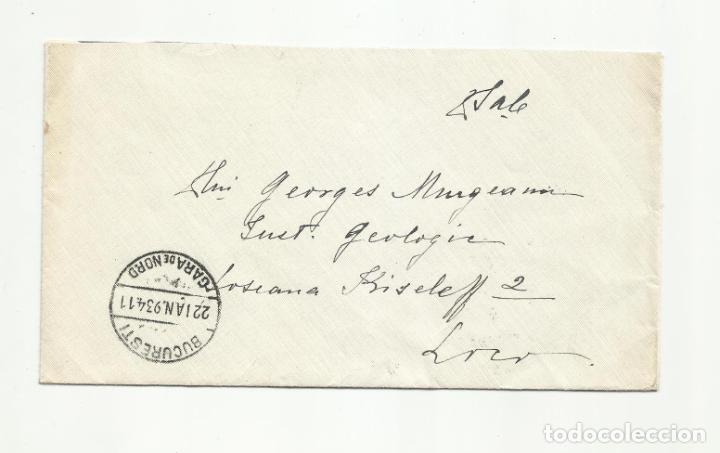 Sale
Georges Murgeanu
Inst. Geologic
Soseaua Kiseleff 2
Loco.
BUCURESTI GARA DE NORD
22 IAN. 934 11
todocoleccion.net